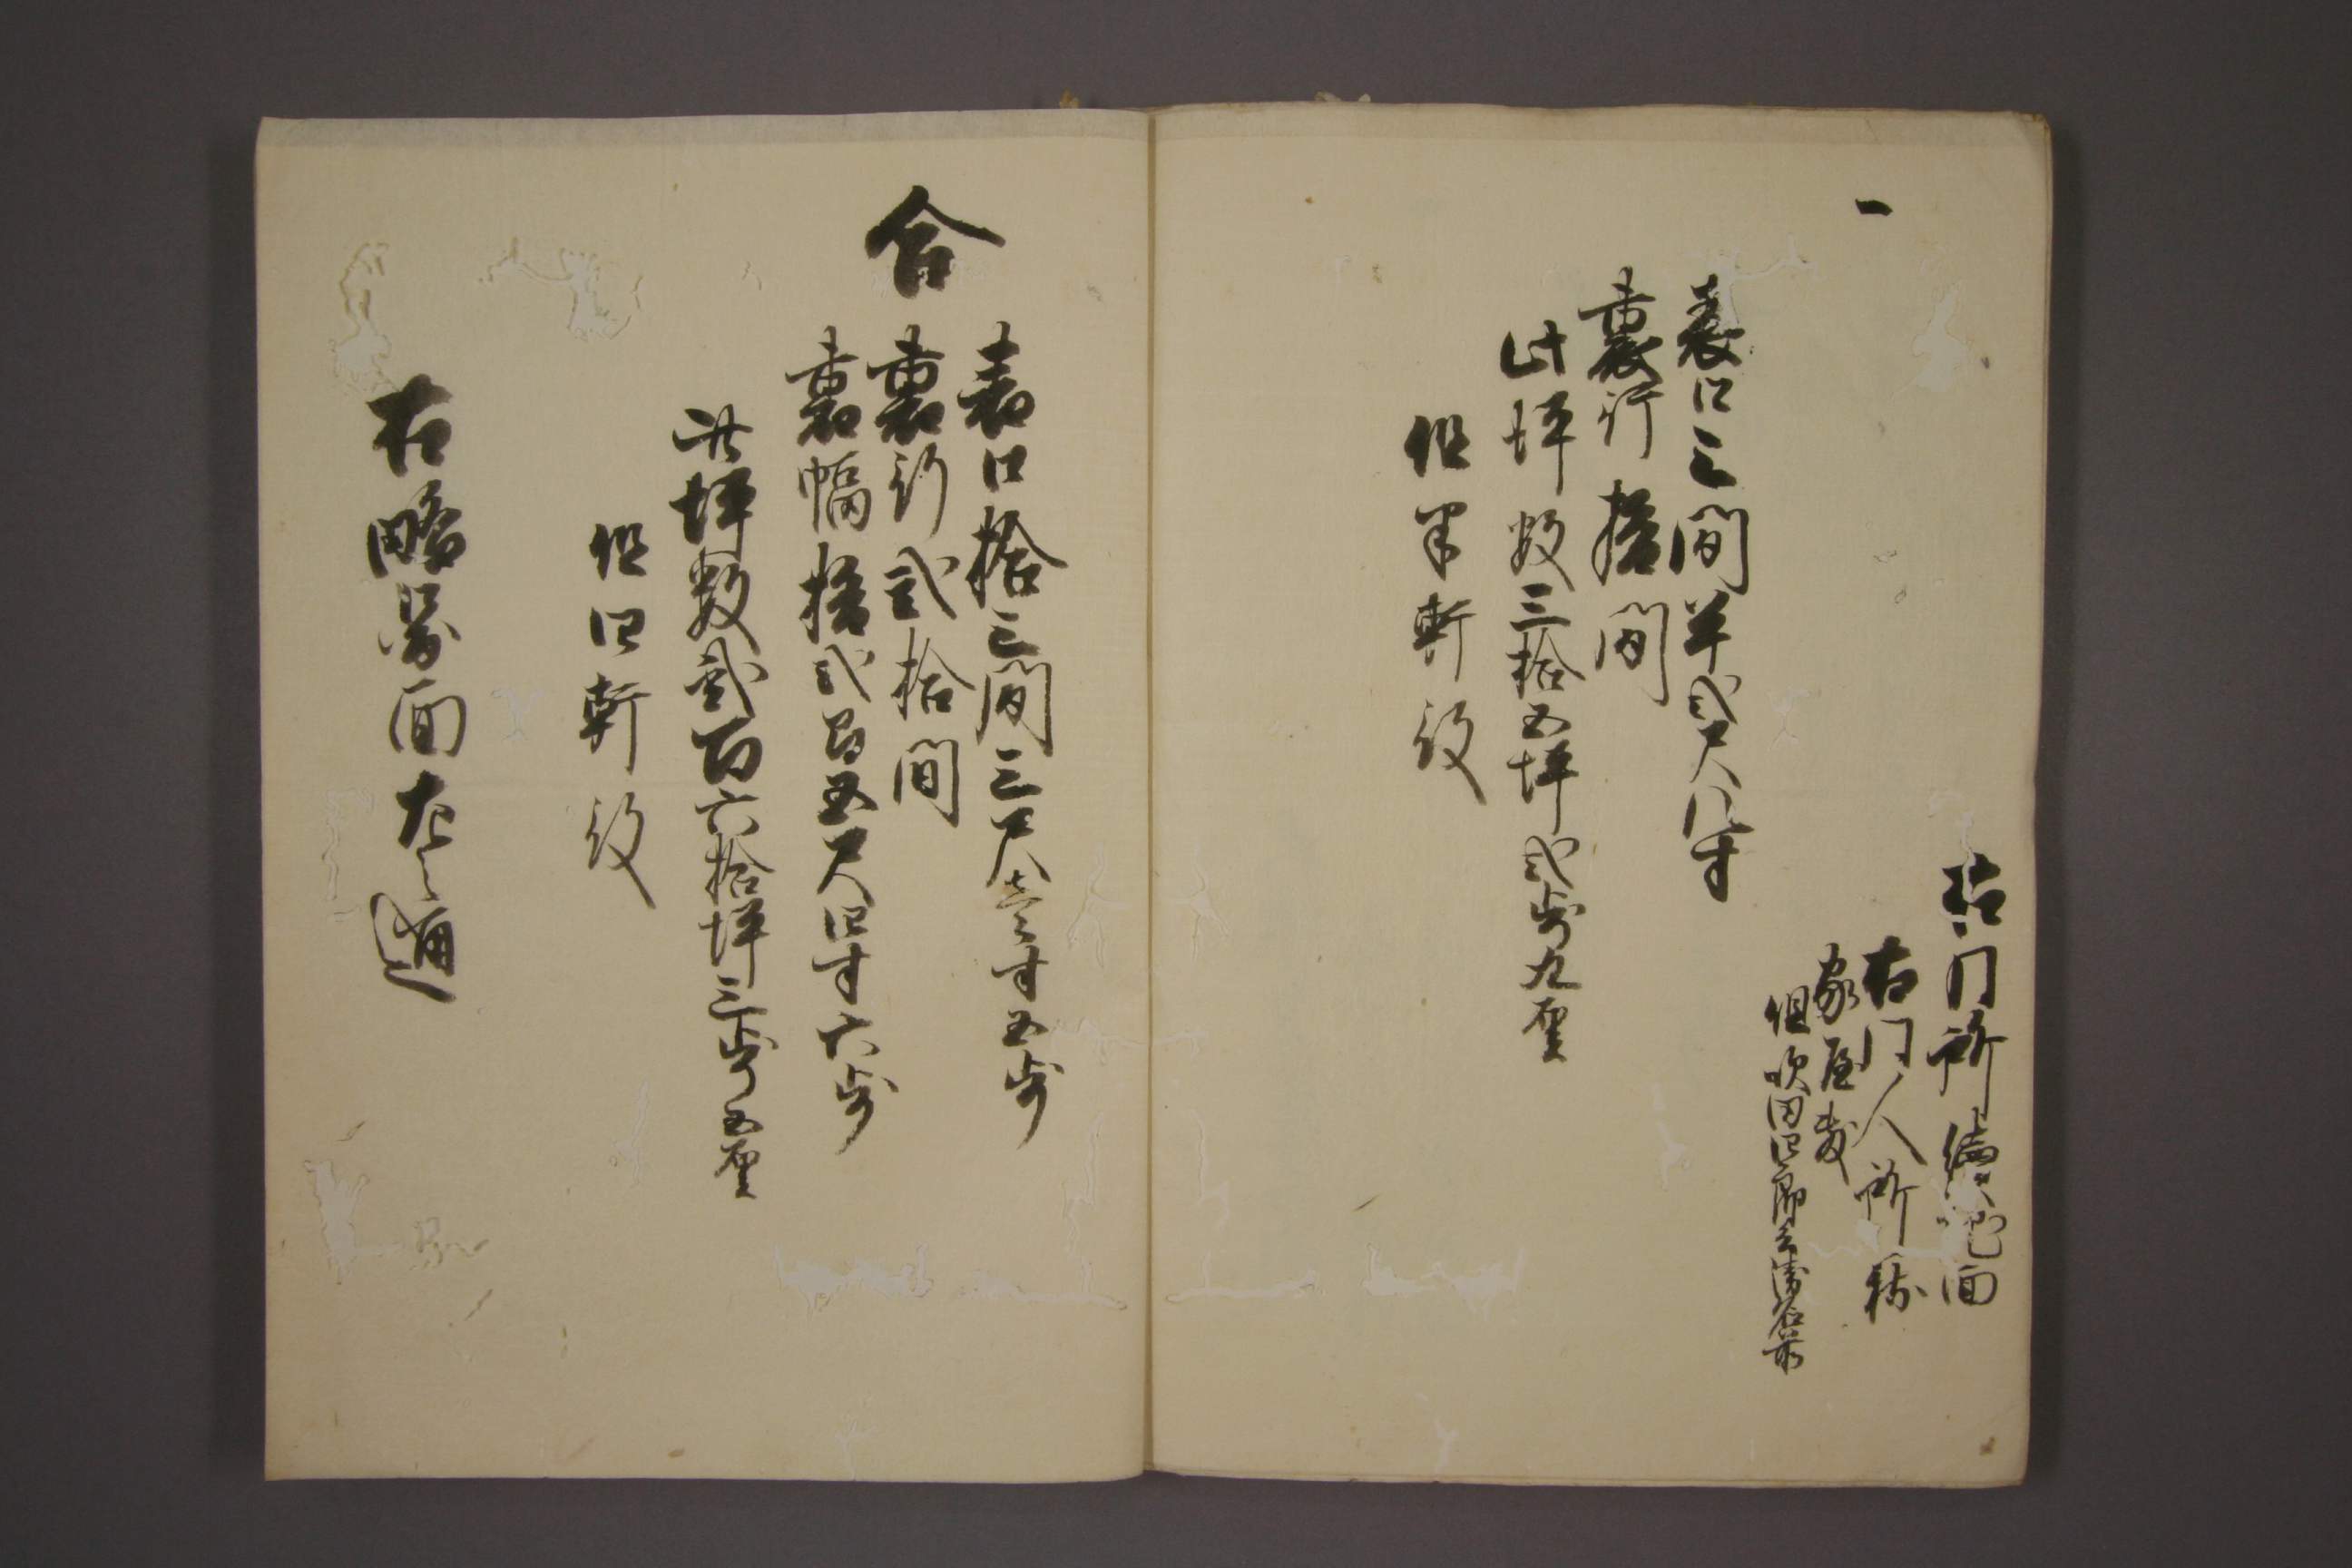 一
右同所続地面
右同人所持
家屋敷
但吹田四郎兵衛名前
表口三間半弐尺八寸
裏行拾間
此坪数三拾五坪弐歩九厘
但半軒役
合
表口拾三間三尺壱寸五歩
裏行弐拾間
裏幅拾弐間五尺四寸六歩
此坪数弐百六拾坪三歩五厘
但四軒役
右略図面左之通